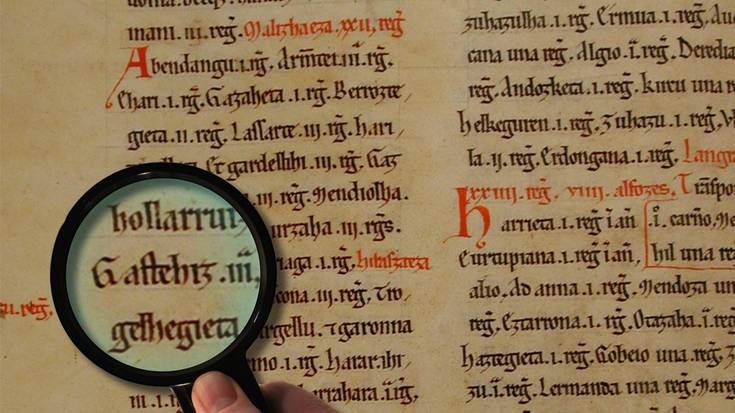 mani. iii. reg̃. Malizhaeza. xxii. reg̃
Abendangu.i.rg̃. Armentei.iii. rg̃.
Chari .i. rg̃. Gazaheta .i. rg̃. Berrozte
gieta .ii. reg̃. Lassarte .iii. rg̃. hari
Et gardellihi .iii. rg̃. Gaz
.iii. reg̃. Mendiolha.
hollarruiz
urzaha .iii. rg̃s.
Gastehiz .iii.
iaga .i. rg̃. hiraszaeza
.iii. reg̃. Tro
gelhegieta
argellu. ⁊ garonna
.i. rg̃. Harar.ihr
errahara .i. rg̃.
zu. reg̃.
zuhazulha .i. rg̃. Ermua .i. reg̃.
cana una reg̃. Algio .i. reg̃. Deredia
reg̃. Andozketa .i. reg̃. kircu una r
helkeguren .i. reg̃. Zuhazu .i. reg̃.
la .ii. reg̃. Erdongana .i. reg̃. Langra
hxxiiii. reg̃. viii. alfozes. Tr̃aspo
arrieta .i. reg̃ i añ .i. carño.
Eurtupiana .i. reg̃ i añ, hil una re
alio. Ad anna .i. reg̃. Mendoza un
reg̃. Eztarrona .i. rg̃. Otazaha. i. reg̃
haztegieta .i. reg̃. Gobeio una reg̃. Z
zu .i. reg̃. Lermanda una reg̃. Marg